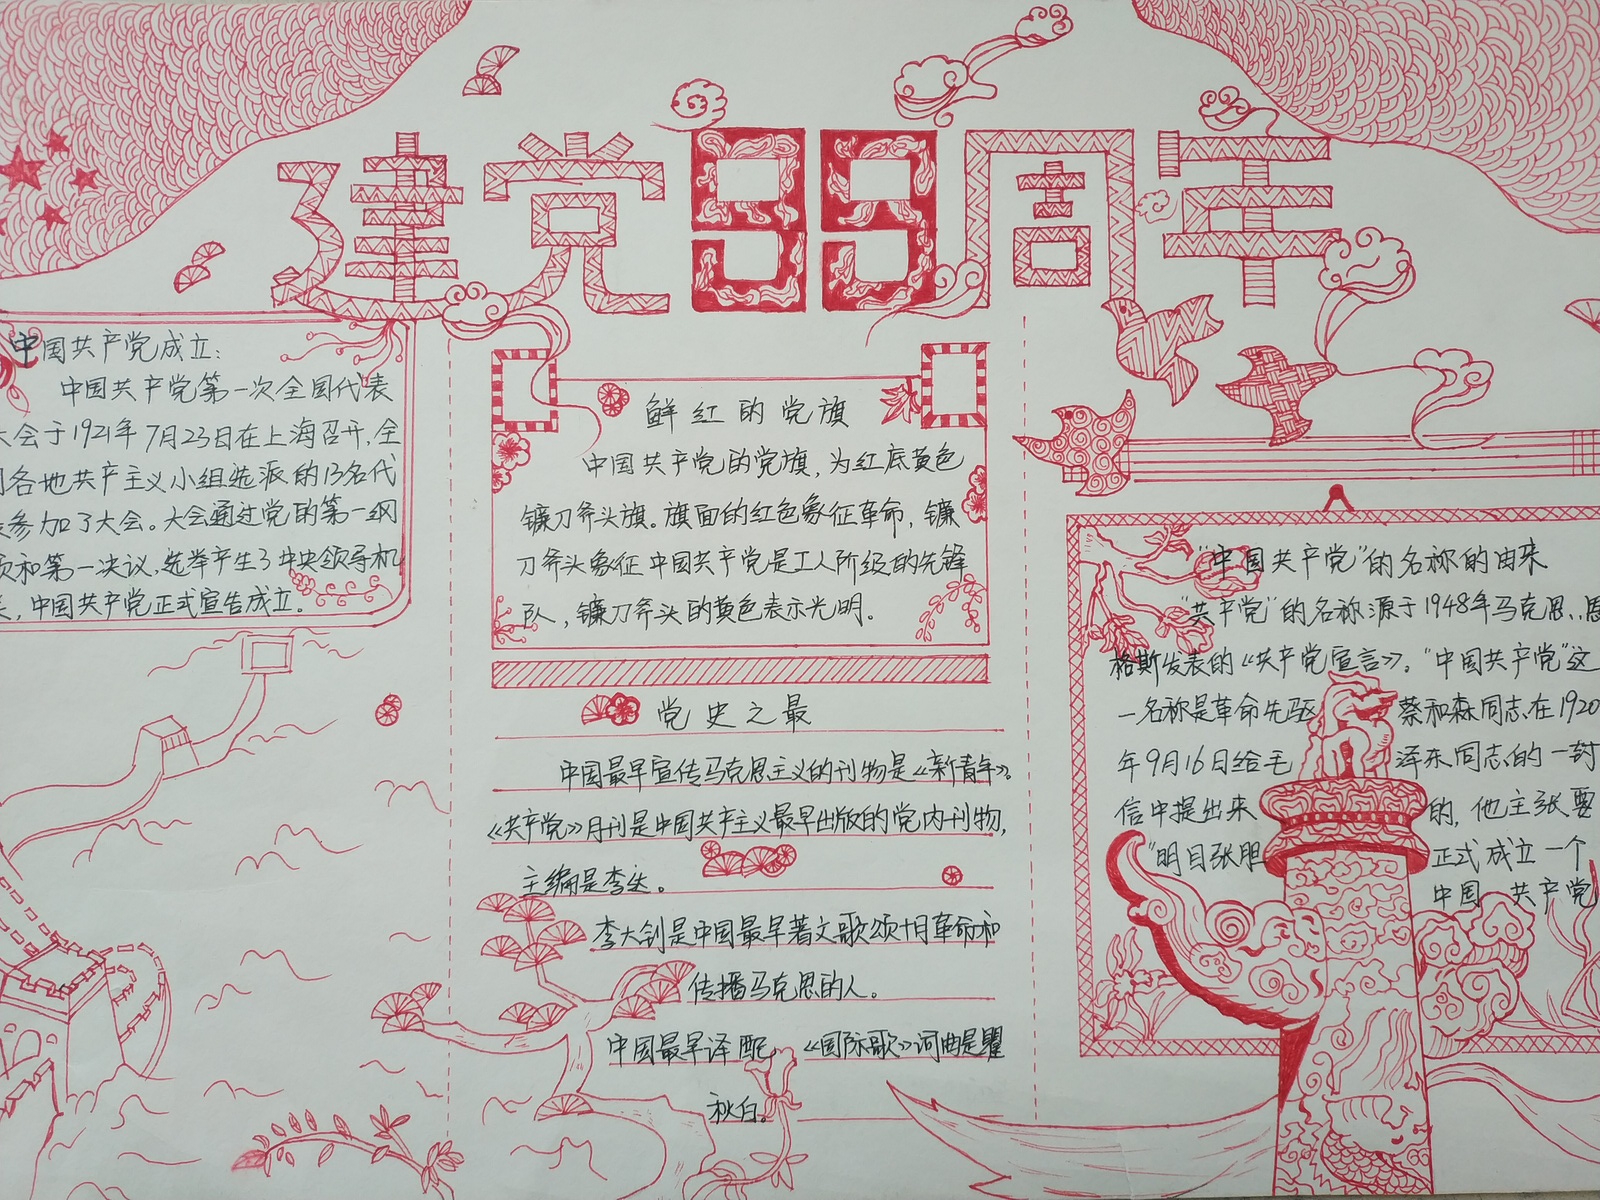 建党99周年
中国共产党成立:
中国共产党第一次全国代表
大会于1921年7月23日在上海召开,全
国各地共产主义小组选派的13名代
表参加了大会。大会通过党的第一纲
领和第一决议,选举产生了中央领导机
关,中国共产党正式宣告成立。
鲜红的党旗
中国共产党的党旗,为红底黄色
镰刀斧头旗。旗面的红色象征革命,镰
刀斧头象征中国共产党是工人阶级的先锋
队,镰刀斧头的黄色表示光明。
党史之最
中国最早宣传马克思主义的刊物是《新青年》。
《共产党》月刊是中国共产主义最早出版的党内刊物,
主编是李达。
李大钊是中国最早著文歌颂十月革命和
传播马克思的人。
中国最早译配《国际歌》词曲是瞿
秋白。
"中国共产党"的名称的由来
"共产党"的名称源于1948年马克思、恩
格斯发表的《共产党宣言》。"中国共产党"这
一名称是革命先驱蔡和森同志在1920
年9月16日给毛泽东同志的一封
信中提出来的,他主张要
"明目张胆正式成立一个
中国共产党